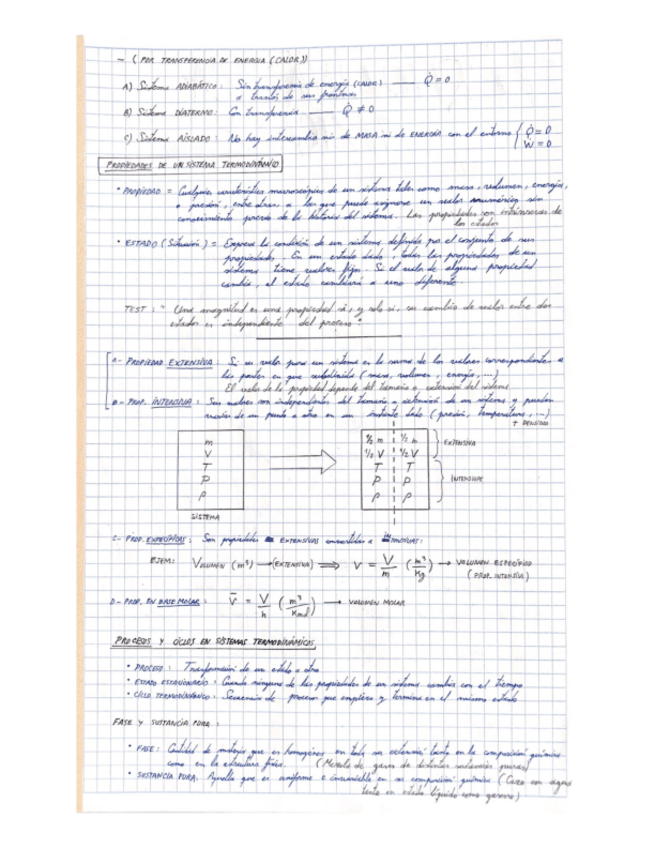 — ( POR TRANSFERENCIA DE ENERGIA (CALOR))
A) Sistema ADIABÁTICO: Sin transferencia de energía (CALOR) —— Q̇ = 0
a través de sus fronteras
B) Sistema DIATERMO: Con transferencia —— Q̇ ≠ 0
C) Sistema AISLADO: No hay intercambio ni de MASA ni de ENERGÍA con el entorno { Q̇ = 0
Ẇ = 0
PROPIEDADES DE UN SISTEMA TERMODINÁMICO
• PROPIEDAD = Cualquier característica macroscópica de un sistema tales como masa, volumen, energía,
o presión, entre otras, a las que puede asignarse un valor numérico sin
conocimiento previo de la historia del sistema. Las propiedades son intrínsecas de
los estados
• ESTADO (Situación) = Expresa la condición de un sistema definido por el conjunto de sus
propiedades. En un estado dado, todas las propiedades de un
sistema tiene valores fijos. Si el valor de alguna propiedad
cambia, el estado cambiará a uno diferente.
TEST: " Una magnitud es una propiedad si, y solo si, su cambio de valor entre dos
estados es independiente del proceso "
A- PROPIEDAD EXTENSIVA: Si su valor para un sistema es la suma de los valores correspondientes a
las partes en que subdivida (masa, volumen, energía, ...)
El valor de la propiedad depende del tamaño o extensión del sistema
B- PROP. INTENSIVA: Sus valores son independientes del tamaño o extensión de un sistema y pueden
variar de un punto a otro en un instante dado (presión, temperatura, ...)
+ DENSIDAD
m
V
T
P
ρ
SISTEMA
½ m ½ m
½ V ½ V
T T
P P
ρ ρ
EXTENSIVA
INTENSIVA
C- PROP. ESPECÍFICAS: Son propiedades EXTENSIVAS convertidas a INTENSIVAS:
EJEM: VOLUMEN (m³) → (EXTENSIVA) ⟹ v = V/m (m³/Kg) → VOLUMEN ESPECÍFICO
(PROP. INTENSIVA)
D- PROP. EN BASE MOLAR: v̄ = V/n (m³/Kmol) → VOLUMEN MOLAR
PROCESOS Y CICLOS EN SISTEMAS TERMODINÁMICOS
• PROCESO: Transformación de un estado a otro
• ESTADO ESTACIONARIO: Cuando ninguna de las propiedades de un sistema cambia con el tiempo
• CICLO TERMODINÁMICO: Secuencia de procesos que empieza y termina en el mismo estado
FASE Y SUSTANCIA PURA:
• FASE: Cantidad de materia que es homogénea en toda su extensión tanto en la composición química
como en la estructura física. (Mezcla de gases de distintas sustancias puras)
• SUSTANCIA PURA: Aquella que es uniforme e invariable en su composición química (Caso con agua
tanto en estado líquido como gaseoso)